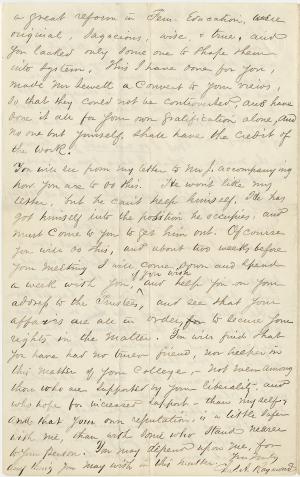 a great reform in Fem. Education, were
original, sagacious, wise, & true, and
you lacked only some one to shape them
into system. This I have done for you,
made Mr Sewell a Convert to your views,
so that they could not be controverted, and have
done it all for your own gratification alone, and
no one but yourself, shall have the credit of
the work.
You will see from my letter to Mr J. accompanying
how you are to do this. He wont like my
letter, but he can't help himself. He has
got himself into the position he occupies, and
must come to you to get him out. Of course
you will do this, and about two weeks before
your meeting I will come down and spend
a week with you, if you wish and help you on your
address to the Trustees, and see that your
affairs are all in order, for to secure your
rights in the matter. You will find that
you have had no truer friend, nor helper in
this matter of your College - not even among
those who are supported by your liberality, and
who hope for increased support - than myself,
And that your own reputation, is a little safer
with me, than with some who stand nearer
to your person. You may depend upon me, for
any thing you may wish in this matter. Yrs truly